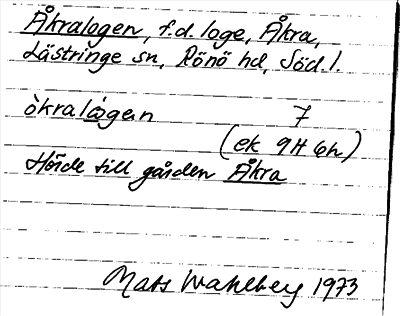 Åkralogen, f.d. loge, Åkra,
Lästringe sn, Rönö hd, Söd.l.
òkralógen 7
(ek 9H 6h)
Hörde till gården Åkra
Mats Wahlberg 1973